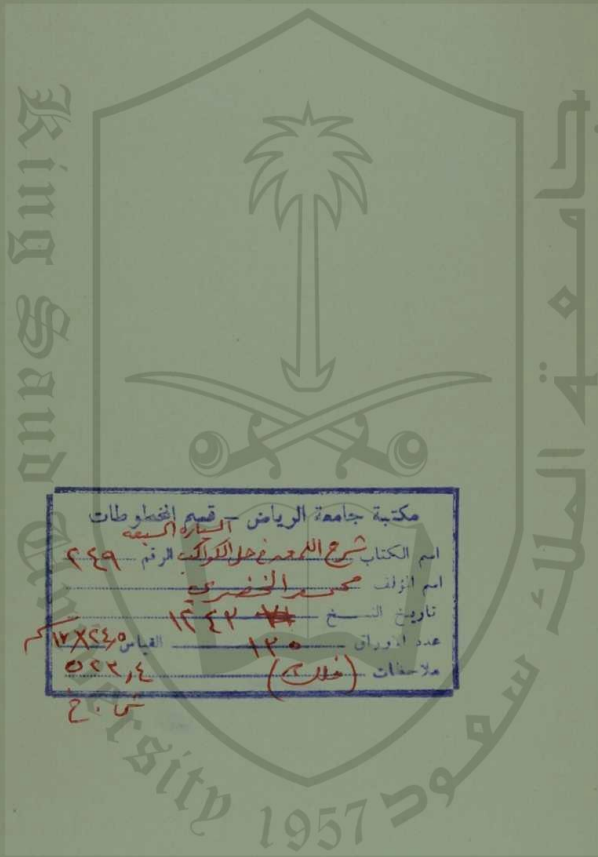 King Saud University 1957
جامعة الملك سعود
مكتبة جامعة الرياض – قسم المخطوطات
السيارة السبعة
اسم الكتاب شرح اللمعة في حل الكواكب الرقم ٢٤٩
اسم المؤلف محمد الخضري
تاريخ النسخ ١٢٤٣
عدد الأوراق ١٣٥ القياس ٢٤,٥×١٧ سم
ملاحظات (فلك) ٥٢٣,٤
ش . خ